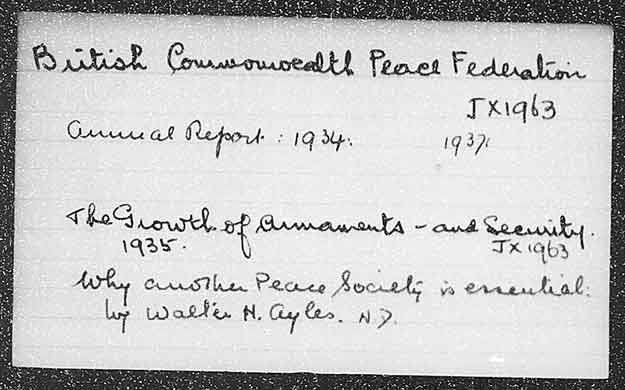 British Commonwealth Peace Federation
JX1963
Annual Report : 1934. 1937.
The Growth of Armaments - and Security.
1935. JX1963
Why another Peace Society is essential:
by Walter H. Ayles. N.D.